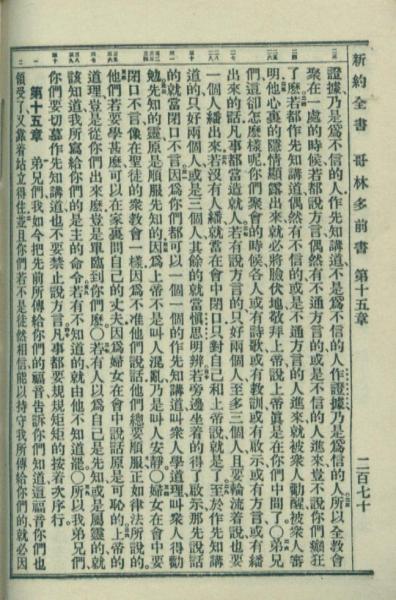 新約全書 哥林多前書 第十五章 二百七十
證據乃是爲不信的人作先知講道不是爲不信的人作證據乃是爲信的人所以全教會
聚在一處的時候若都說方言偶然有不通方言的或是不信的人進來豈不說你們癲狂
了麽若都作先知講道偶然有不信的或是不通方言的人進來就被衆人勸醒被衆人審
明他心裏的隱情顯露出來就必將臉伏地敬拜上帝說上帝眞是在你們中間了〇弟兄
們這卻怎麽樣呢你們聚會的時候各人或有詩歌或有教訓或有啟示或有方言或有繙
出來的話凡事都當造就人若有說方言的只好兩個人至多三個人且要輪流着說也要
一個人繙出來若沒有人繙就當在會中閉口只對自己和上帝說就是了至於作先知講
道的只好兩個人或是三個人其餘的就當愼思明辨若旁邊坐着的得了啟示那先說話
的就當閉口不言因爲你們都可以一個一個的作先知講道叫衆人學道理叫衆人得勸
勉先知的靈原是順服先知的因爲上帝不是叫人混亂乃是叫人安靜〇婦女在會中要
閉口不言像在聖徒的衆教會一樣因爲不准他們說話他們總要順服正如律法所說的
他們若要學甚麽可以在家裏問自己的丈夫因爲婦女在會中說話原是可恥的上帝的
道理豈是從你們出來麽豈是單臨到你們麽〇若有人以爲自己是先知或是屬靈的就
該知道我所寫給你們的是主的命令若有不知道的就由他不知道罷〇所以我弟兄們
你們要切慕作先知講道也不要禁止說方言凡事都要規規矩矩的按着次序行
第十五章 弟兄們我如今把先前所傳給你們的福音告訴你們知道這福音你們也
領受了又靠着站立得住並且你們若不是徒然相信能以持守我所傳給你們的就必因